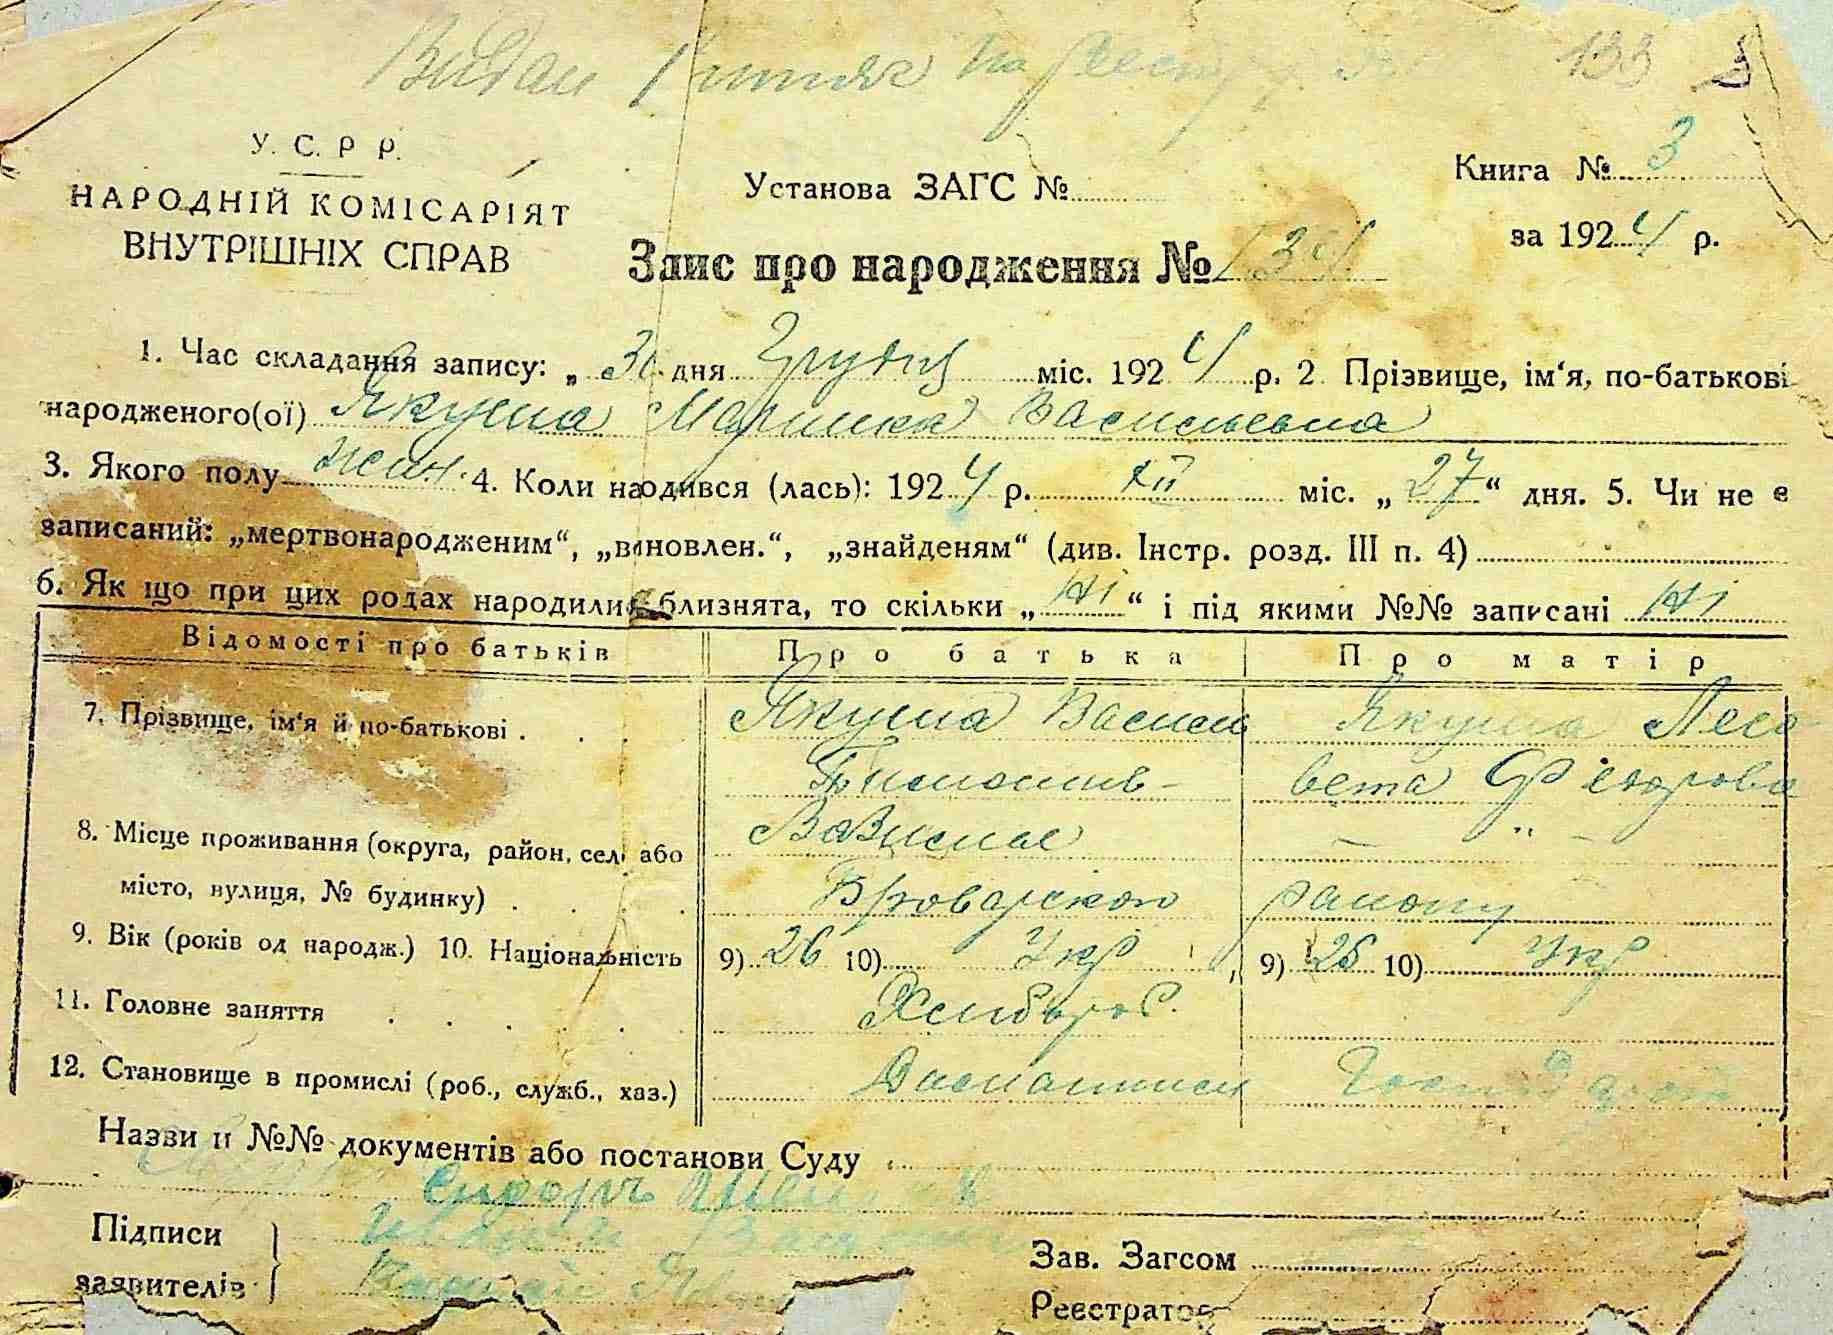 Видан Витяг по реєстру 133
У. С. Р Р.
НАРОДНІЙ КОМІСАРІЯТ
ВНУТРІШНІХ СПРАВ
Установа ЗАГС №
Книга № 3
за 1924 р.
Запис про народження № 134
1. Час складання запису: „ 31 дня Грудня міс. 1924 р. 2. Прізвище, ім‘я, по-батькові
народженого(ої) Якуша Маринка Васильевна
3. Якого полу жін. 4. Коли народився (лась): 1924 р. XII міс. „ 27 “ дня. 5. Чи не є
записаний: „мертвонародженим“, „виновлен.“, „знайденям“ (див. Інстр. розд. III п. 4)
6. Як що при цих родах народились близнята, то скільки „ Ні “ і під якими №№ записані Ні
Відомості про батьків Про батька Про матір
7. Прізвище, ім‘я й по-батькові . . . Якуша Василь Якуша Лесо
Тимошив- вета Фієдорова
8. Місце проживання (округа, район, село або — „ —
місто, вулиця, № будинку) . . . Броварского району
9. Вік (років од народж.) 10. Національність 9) 26 10) Укр 9) 25 10) Укр
11. Головне заняття . . . . . Хлибороб.
12. Становище в промислі (роб., служб., хаз.)
Назви й №№ документів або постанови Суду
Сидорь
Підписи
заявителів
Зав. Загсом
Реєстратор